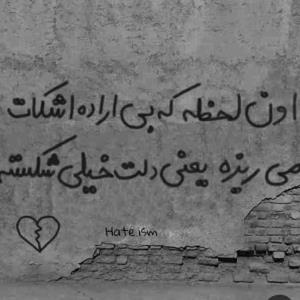 اون لحظه که بی اراده اشکات
می ریزه یعنی دلت خیلی شکسته
Hate.ism